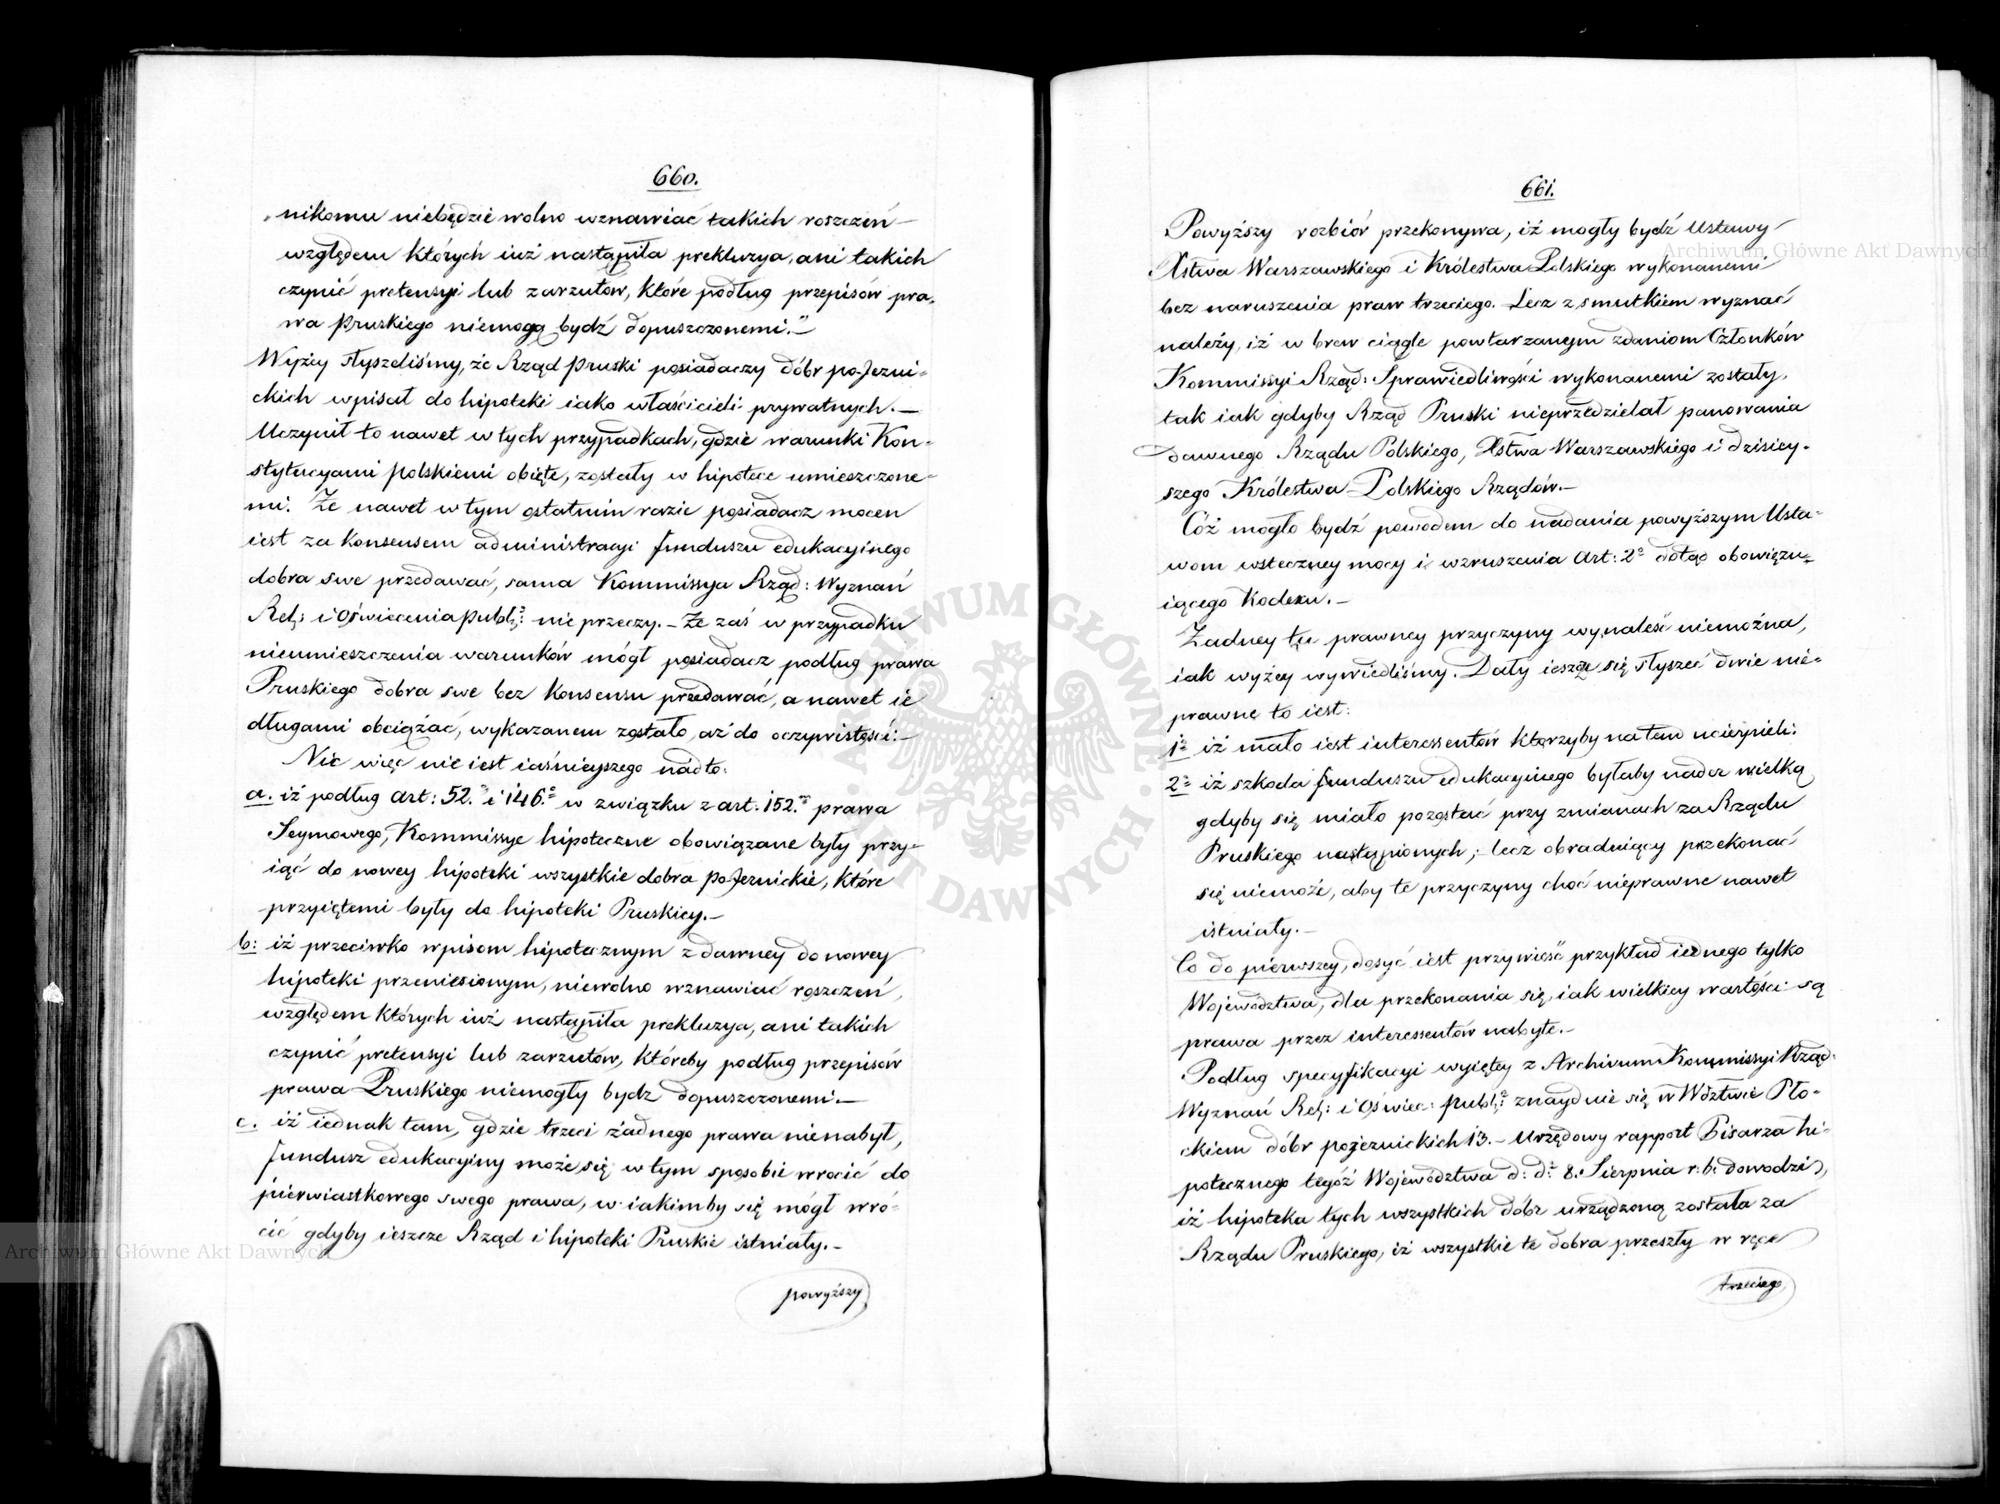 660.
„nikomu niebędzie wolno wznawiać takich roszczeń –
względem których iuż nastąpiła prekluzya, ani takich
czynić pretensyi lub zarzutów, które podług przepisów pra-
wa pruskiego niemogą bydź dopuszczonemi."–
Wyżey słyszeliśmy, że Rząd pruski posiadaczy dóbr po-Jezui-
ckich wpisał do hipoteki iako właścicieli prywatnych.–
Uczynił to nawet w tych przypadkach, gdzie warunki Kon-
stytucyami polskiemi obięte, zostały w hipotece umieszczone-
mi. Że nawet w tym ostatnim razie posiadacz mocen
iest za konsensem administracyi funduszu edukacyinego
dobra swe przedawać, sama Kommissya Rząd: Wyznań
Rel: i Oświecenia publ: nie przeczy. – Że zaś w przypadku
nieumieszczenia warunków mógł posiadacz podług prawa
Pruskiego dobra swe bez konsensu przedawać, a nawet ie
długami obciążać, wykazanem zostało, aż do oczywistości. –
Nic więc nie iest iaśnieyszego nadto:
a. iż podług art: 52. i 146. w związku z art. 152. prawa
Seymowego, Kommissye hipoteczne obowiązane były przy-
iąć do nowey hipoteki wszystkie dobra po-Jezuickie, które
przyiętemi były do hipoteki Pruskiey. –
b: iż przeciwko wpisom hipotecznym z dawney do nowey
hipoteki przeniesionym, niewolno wznawiać roszczeń,
względem których iuż nastąpiła prekluzya, ani takich
czynić pretensyi lub zarzutów, któreby podług przepisów
prawa Pruskiego niemogły bydz dopuszczonemi. –
c. iż iednak tam, gdzie trzeci żadnego prawa nienabył,
fundusz edukacyiny może się w tym sposobie wrócić do
pierwiastkowego swego prawa, w iakimby się mógł wró-
cić gdyby ieszcze Rząd i hipoteki Pruskie istniały. –
powyższy
661.
Powyższy rozbiór przekonywa, iż mogły bydź Ustawy
Xstwa Warszawskiego i Królestwa Polskiego wykonanemi
bez naruszenia praw trzeciego. Lecz z smutkiem wyznać
należy, iż w brew ciągle powtarzanym zdaniom Członków
Kommissyi Rząd: Sprawiedliwości wykonanemi zostały,
tak iak gdyby Rząd Pruski nieprzedzielał panowania
dawnego Rządu Polskiego, Xstwa Warszawskiego i dzisiey-
szego Królestwa Polskiego Rządów. –
Cóż mogło bydź powodem do nadania powyższym Usta-
wom wsteczney mocy i wzruszenia Art: 2° dotąd obowięzu-
iącego Kodexu. –
Żadney tu prawney przyczyny wynaleść niemożna,
iak wyżey wywiedliśmy. Dały ieszcze się słyszeć dwie nie-
prawne to iest:
1° iż mało iest interessentów którzyby na tem ucierpieli:
2° iż szkoda funduszu edukacyinego byłaby nader wielką
gdyby się miało pozostać przy zmianach za Rządu
Pruskiego nastąpionych; – lecz obraduiący przekonać
się niemoże, aby te przyczyny choć nieprawne nawet
istniały. –
Co do pierwszey, dosyć iest przywieść przykład iednego tylko
Województwa, dla przekonania się, iak wielkiey wartości są
prawa przez interessentów nabyte. –
Podług specyfikacyi wyiętey z Archivum Kommissyi Rząd:
Wyznań Rel: i Oświec: publ: znayduie się w Wdztwie Pło-
ckiem dóbr pojezuickich 13. – Urzędowy rapport Pisarza hi-
potecznego tegóż Województwa d: d: 8. Sierpnia r: b: dowodzi,
iż hipoteka tych wszystkich dóbr urządzoną została za
Rządu Pruskiego, iż wszystkie te dobra przeszły w ręce
trzeciego
Archiwum Główne Akt Dawnych
Archiwum Główne Akt Dawnych
ARCHIWUM GŁÓWNE AKT DAWNYCH